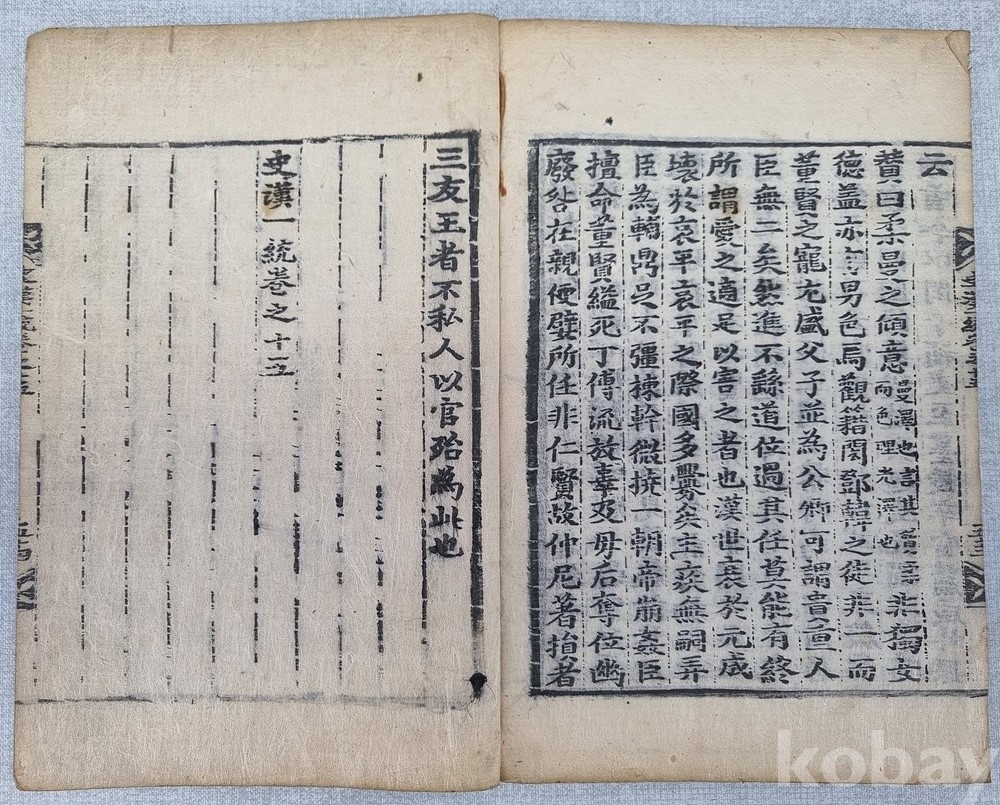 云
贊曰柔曼之傾意曼澤也言其質柔而色理光澤也非獨女
德盖亦有男色焉觀籍閎鄧韓之徒非一而
董賢之寵尤盛父子並為公卿可謂貴重人
臣無二矣然進不繇道位過其任莫能有終
所謂愛之適足以害之者也漢世衰於元成
壞於哀平哀平之際國多釁矣主疾無嗣弄
臣為輔鼎足不彊棟幹微撓一朝帝崩姦臣
擅命董賢縊死丁傅流放辜及母后奪位幽
廢咎在親便嬖所任非仁賢故仲尼著損者
三友王者不私人以官殆為此也
史漢一統卷之十五
kobay